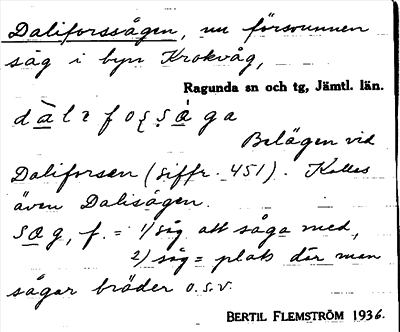 Daliforssågen, nu försvunnen
såg i byn Krokvåg,
Ragunda sn och tg, Jämtl. län.
Belägen vid
Daliforsen (siffr. 451). Kallas
även Dalisågen.
f. = 1) såg att såga med,
2) såg = plats där man
sågar bräder o.s.v.
BERTIL FLEMSTRÖM 1936.